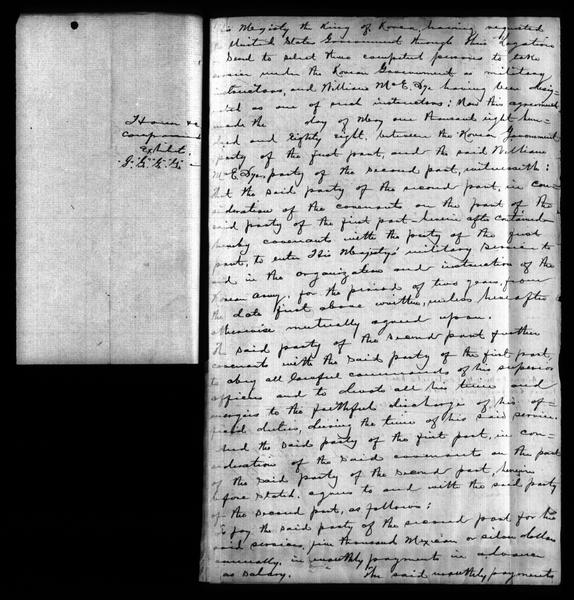 compared
Exhibit
G. G. G. G.
His Majesty the King of Korea, having requested
the United States Government through this Legation
Seoul to select three competent persons to take
service under the Korean Government as military
instructors, and William McE. Dye having been desig-
ated as one of such instructors: Now this agreement
made the day of May one thousand eight hun-
dred and eighty eight, between the Korean Government
party of the first part, and the said William
McE. Dye, party of the second part, witnesseth:
that the said party of the second part, in con-
sideration of the covenants on the part of the
said party of the first part herein after contained
hereby covenants with the party of the first
part, to enter His Majesty's military service to
aid in the organization and instruction of the
Korean army, for the period of two years, from
the date first above written, unless hereafter
otherwise mutually agreed upon.
The said party of the second part further
covenants with the said party of the first part,
to obey all lawful commands of his superior
officers and to devote all his time and
energies to the faithful discharge of his of-
ficial duties, during the time of his said service.
And the said party of the first part, in con-
sideration of the said covenants on the part
of the said party of the second part, herein
before stated, agrees to and with the said party
of the second part, as follows:
To pay the said party of the second part for his
said services, five thousand Mexican or silver dollars
annually, in monthly payments in advance
as salary. The said monthly payments